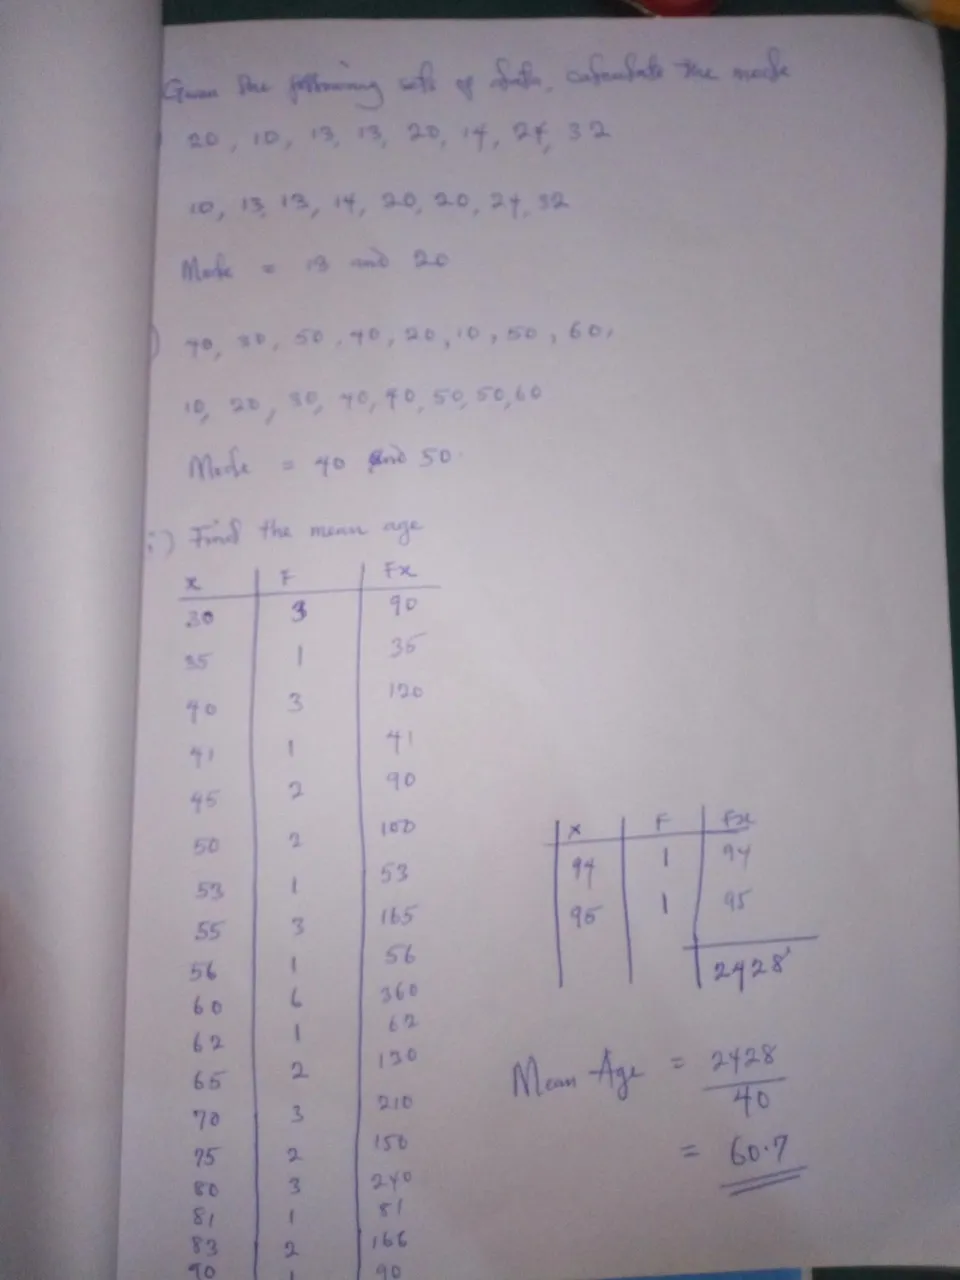 Given the following sets of data, calculate the mode
20, 10, 13, 13, 20, 14, 24, 32
10, 13, 13, 14, 20, 20, 24, 32
Mode = 13 and 20
) 40, 30, 50, 40, 20, 10, 50, 60,
10, 20, 30, 40, 40, 50, 50, 60
Mode = 40 and 50
i) Find the mean age
x F Fx
30 3 90
35 1 35
40 3 120
41 1 41
45 2 90
50 2 100
53 1 53
55 3 165
56 1 56
60 6 360
62 1 62
65 2 130
70 3 210
75 2 150
80 3 240
81 1 81
83 2 166
90 1 90
x F Fx
94 1 94
95 1 95
2428
Mean Age = 2428
40
= 60.7